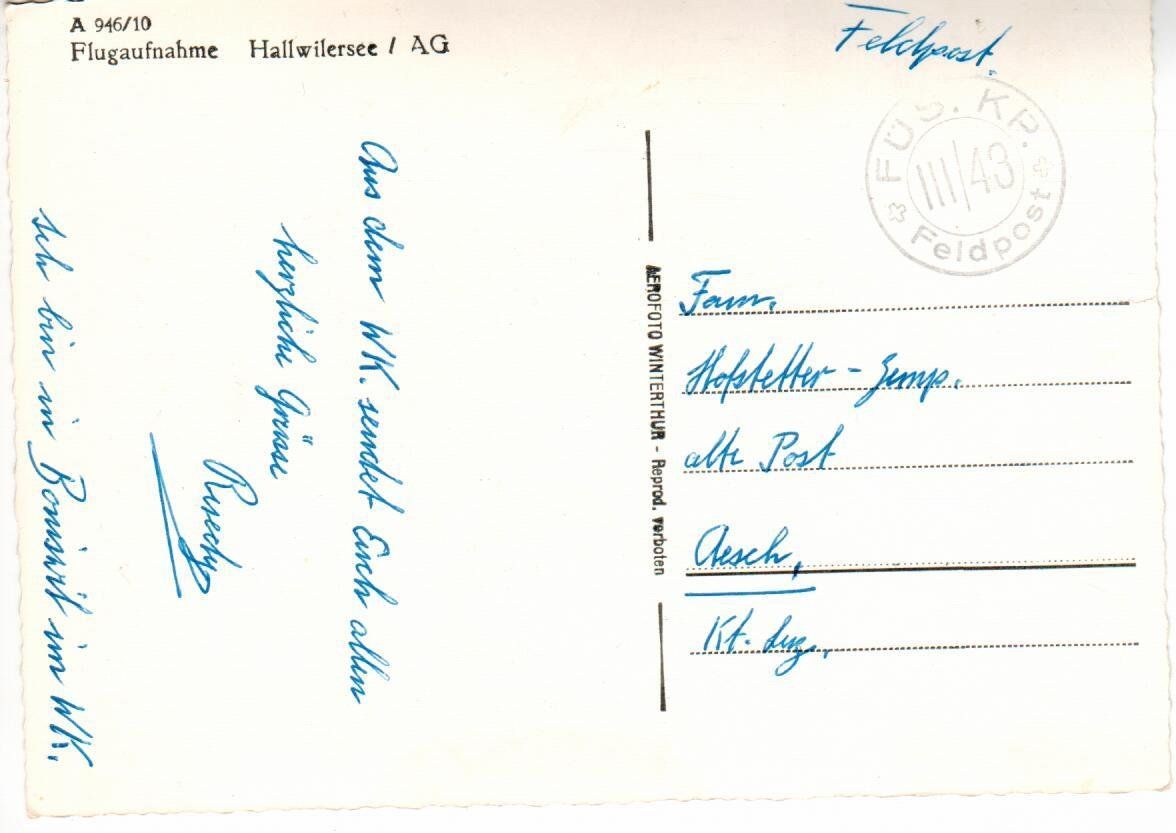 A 946/10
Flugaufnahme Hallwilersee / AG
Feldpost.
FÜS. KP.
III/43
Feldpost
Aus dem WK. sendet Euch allen
herzliche Grüsse
Ich bin in Boniswil im WK.
AEROFOTO WINTERTHUR - Reprod. verboten
Fam.
Hofstetter - Zemp.
alte Post
Aesch,
Kt. Luz.,